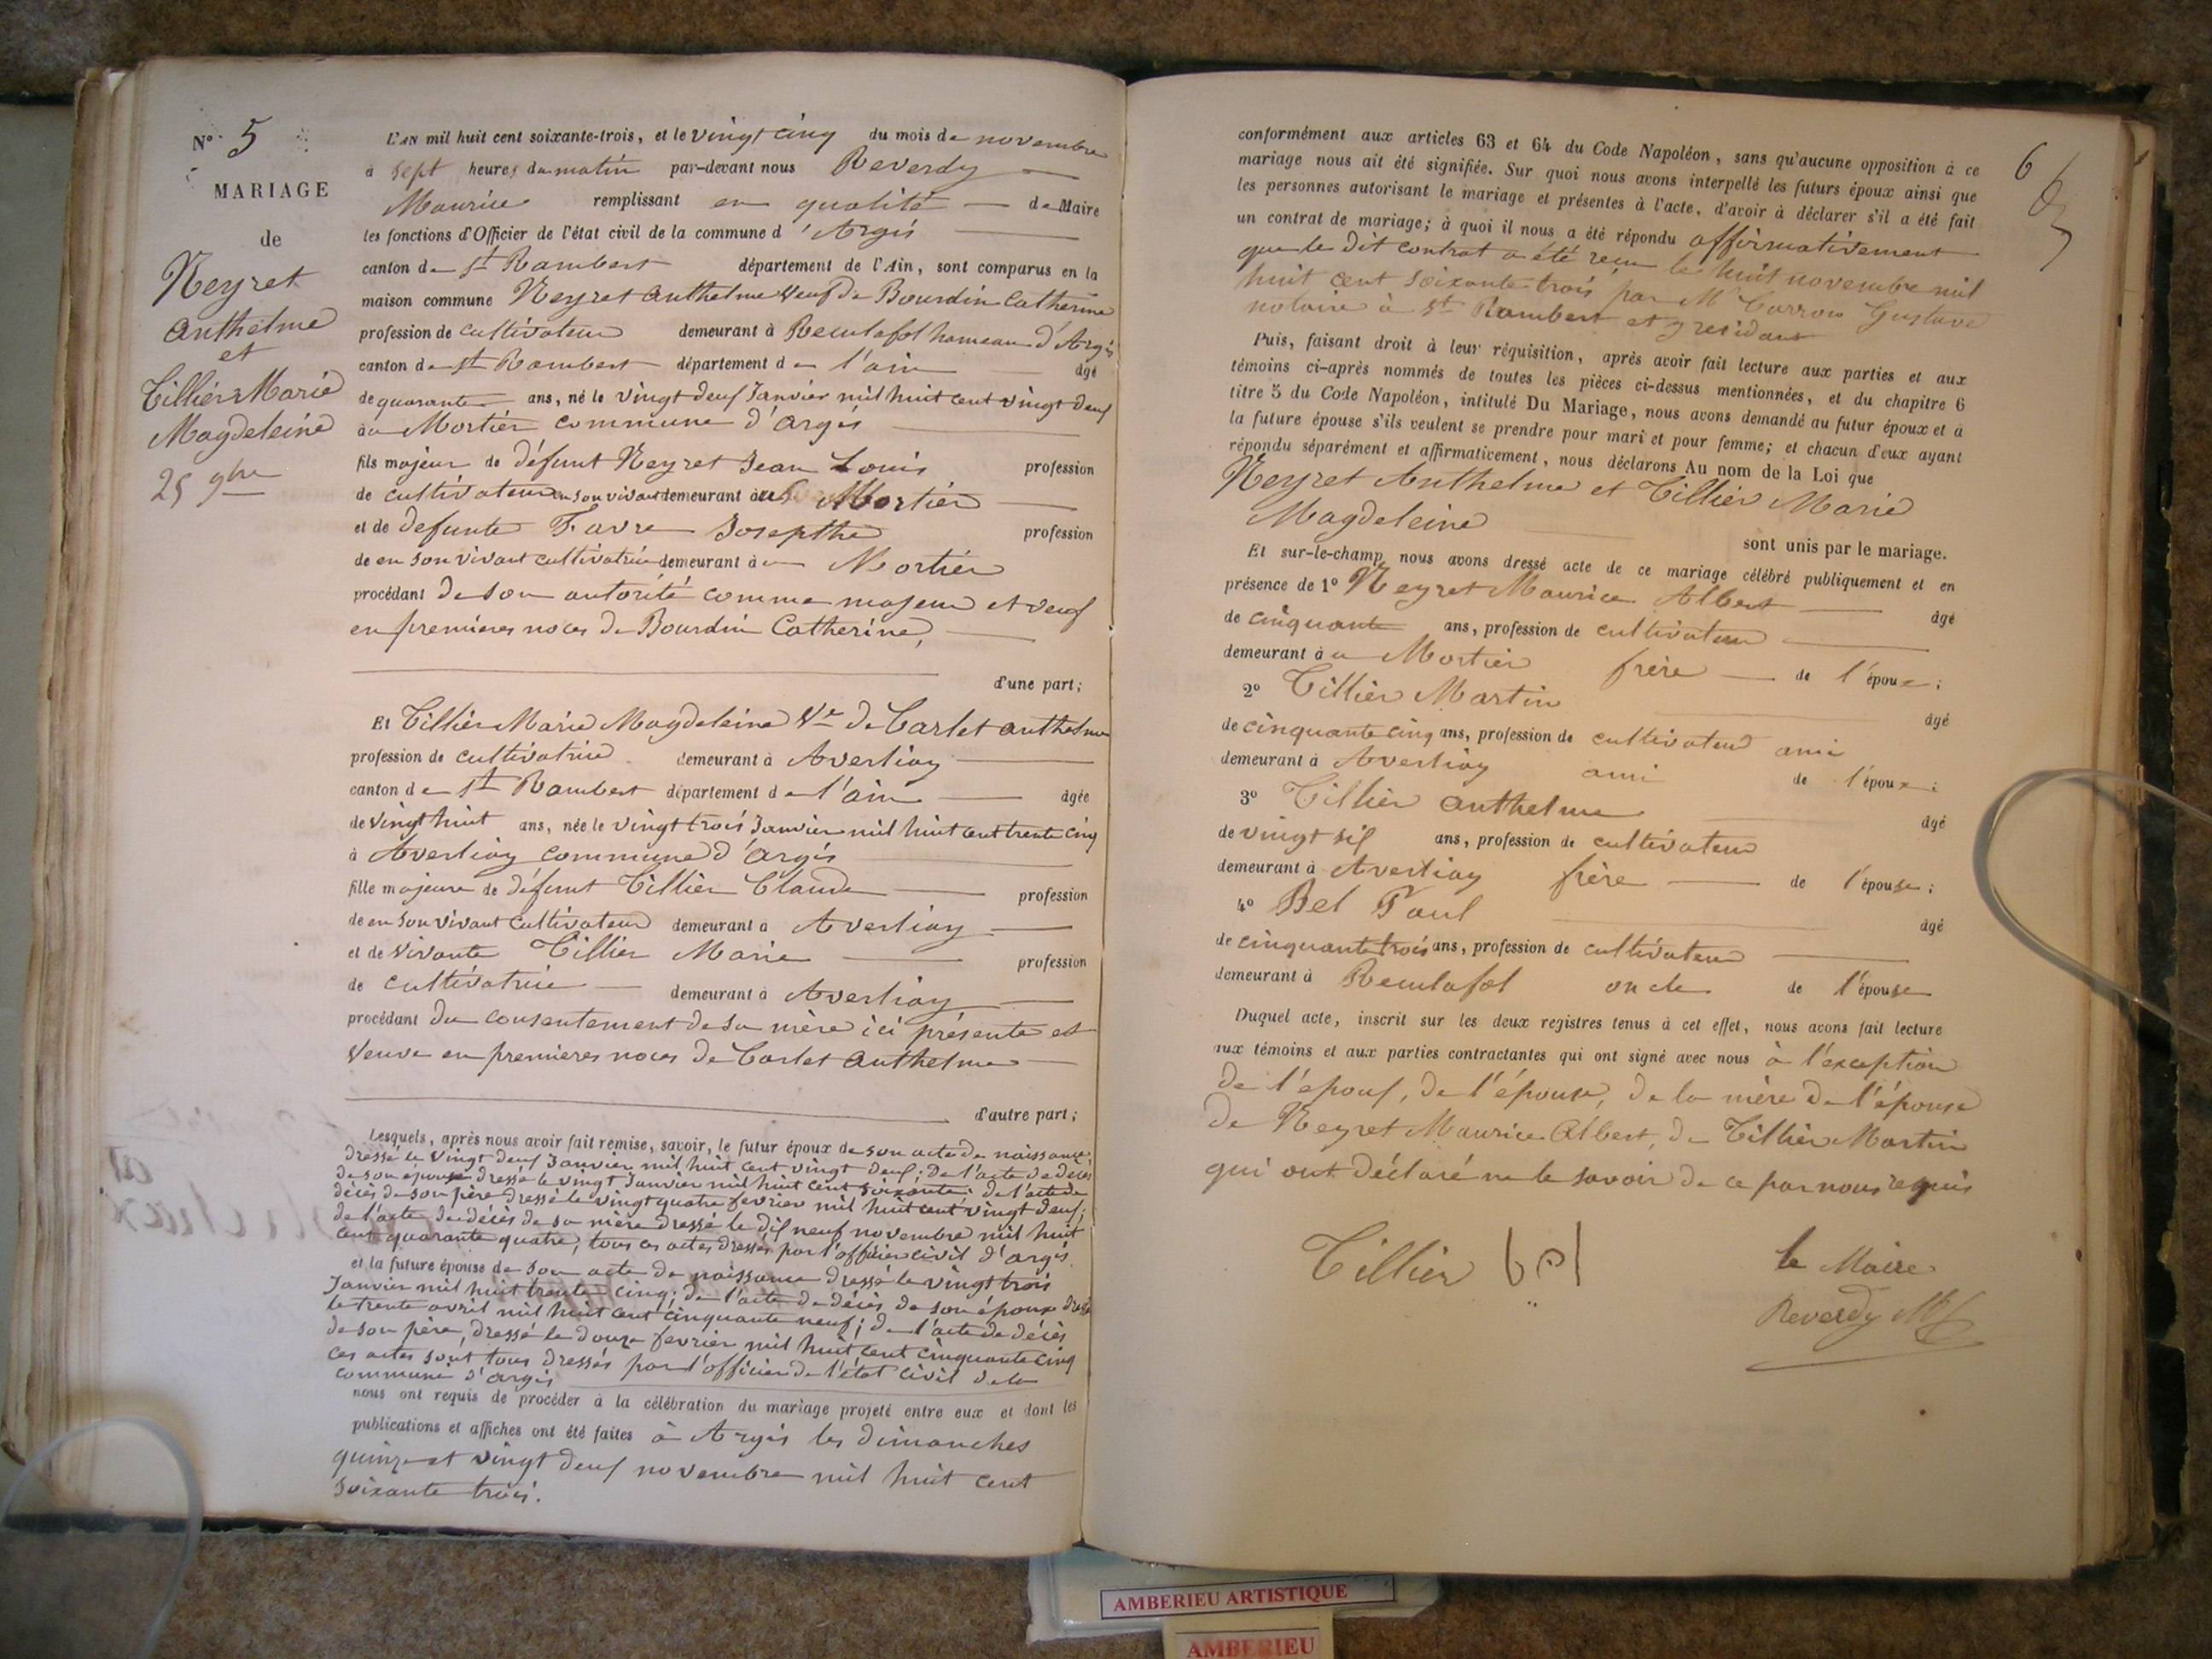 N° 5
MARIAGE
de
Neyret
Anthelme
et
Tillier Marie
Magdeleine
25 9bre
L'AN mil huit cent soixante-trois, et le vingt cinq du mois de novembre
à sept heures du matin par-devant nous Reverdy
Maurice remplissant en qualité de Maire
les fonctions d'Officier de l'état civil de la commune d'Argis
canton de St Rambert département de l'Ain, sont comparus en la
maison commune Neyret Anthelme veuf de Bourdin Catherine
profession de cultivateur demeurant à Reculafol hameau d'Argis
canton de St Rambert département de l'ain âgé
de quarante ans, né le vingt deux Janvier mil huit cent vingt deux
au Mortier commune d'argis
fils majeur de défunt Neyret Jean Louis profession
de cultivateur en son vivant demeurant au Mortier
et de defunte Favre Josepthe profession
de en son vivant cultivatrice demeurant au Mortier
procédant de son autorité comme majeur et veuf
en premieres noces de Bourdin Catherine,
d'une part;
Et Tillier Marie Magdeleine Ve de Carlet anthelme
profession de cultivatrice demeurant à Averliay
canton de St Rambert département de l'ain âgée
de vingt huit ans, née le vingt trois Janvier mil huit cent trente cinq
à Averliay commune d'argis
fille majeure de défunt Tillier Claude profession
de en son vivant cultivateur demeurant à Averliay
et de vivante Tillier Marie profession
de cultivatrice demeurant à Averliay
procédant du consentement de sa mère ici présente et
veuve en premieres noces de Carlet Anthelme
d'autre part;
Lesquels, après nous avoir fait remise, savoir, le futur époux de son acte de naissance,
dressé le vingt deux Janvier mil huit cent vingt deux; De l'acte de décès
de son épouse dressé le vingt Janvier mil huit cent soixante; de l'acte de
décès de son père dressé le vingt quatre fevrier mil huit cent vingt deux;
de l'acte de décès de sa mère dressé le dix neuf novembre mil huit
cent quarante quatre; tous ces actes dressés par l'officier civil d'argis.
et la future épouse de son acte de naissance dressé le vingt trois
Janvier mil huit trente cinq; de l'acte de décès de son époux dressé
le trente avril mil huit cent cinquante neuf; de l'acte de décès
de son père, dressé le douze fevrier mil huit cent cinquante cinq
ces actes sont tous dressés par l'officier de l'état civil de la
commune d'argis
nous ont requis de procéder à la célébration du mariage projeté entre eux et dont les
publications et affiches ont été faites à Argis les dimanches
quinze et vingt deux novembre mil huit cent
soixante trois.
6
conformément aux articles 63 et 64 du Code Napoléon, sans qu'aucune opposition à ce
mariage nous ait été signifiée. Sur quoi nous avons interpellé les futurs époux ainsi que
les personnes autorisant le mariage et présentes à l'acte, d'avoir à déclarer s'il a été fait
un contrat de mariage; à quoi il nous a été répondu affirmativement
que le dit contrat a été reçu le huit novembre mil
huit cent soixante trois par Me Carron Gustave
notaire à St Rambert et y residant
Puis, faisant droit à leur réquisition, après avoir fait lecture aux parties et aux
témoins ci-après nommés de toutes les pièces ci-dessus mentionnées, et du chapitre 6
titre 5 du Code Napoléon, intitulé Du Mariage, nous avons demandé au futur époux et à
la future épouse s'ils veulent se prendre pour mari et pour femme; et chacun d'eux ayant
répondu séparément et affirmativement, nous déclarons Au nom de la Loi que
Neyret Anthelme et Tillier Marie
Magdeleine
sont unis par le mariage.
Et sur-le-champ nous avons dressé acte de ce mariage célébré publiquement et en
présence de 1° Neyret Maurice Albert âgé
de cinquante ans, profession de cultivateur
demeurant au Mortier frère de l'époux;
2° Tillier Martin âgé
de cinquante cinq ans, profession de cultivateur ami
demeurant à Averliay ami de l'époux;
3° Tillier anthelme âgé
de vingt six ans, profession de cultivateur
demeurant à Averliay frère de l'épouse;
4° Bel Paul âgé
de cinquante trois ans, profession de cultivateur
demeurant à Reculafol oncle de l'épouse
Duquel acte, inscrit sur les deux registres tenus à cet effet, nous avons fait lecture
aux témoins et aux parties contractantes qui ont signé avec nous à l'exception
de l'epoux, de l'épouse, de la mère de l'épouse
de Neyret Maurice Albert, de Tillier Martin
qui ont déclaré ne le savoir de ce par nous requis
Tillier bel
le Maire
Reverdy M
AMBERIEU ARTISTIQUE
AMBERIEU